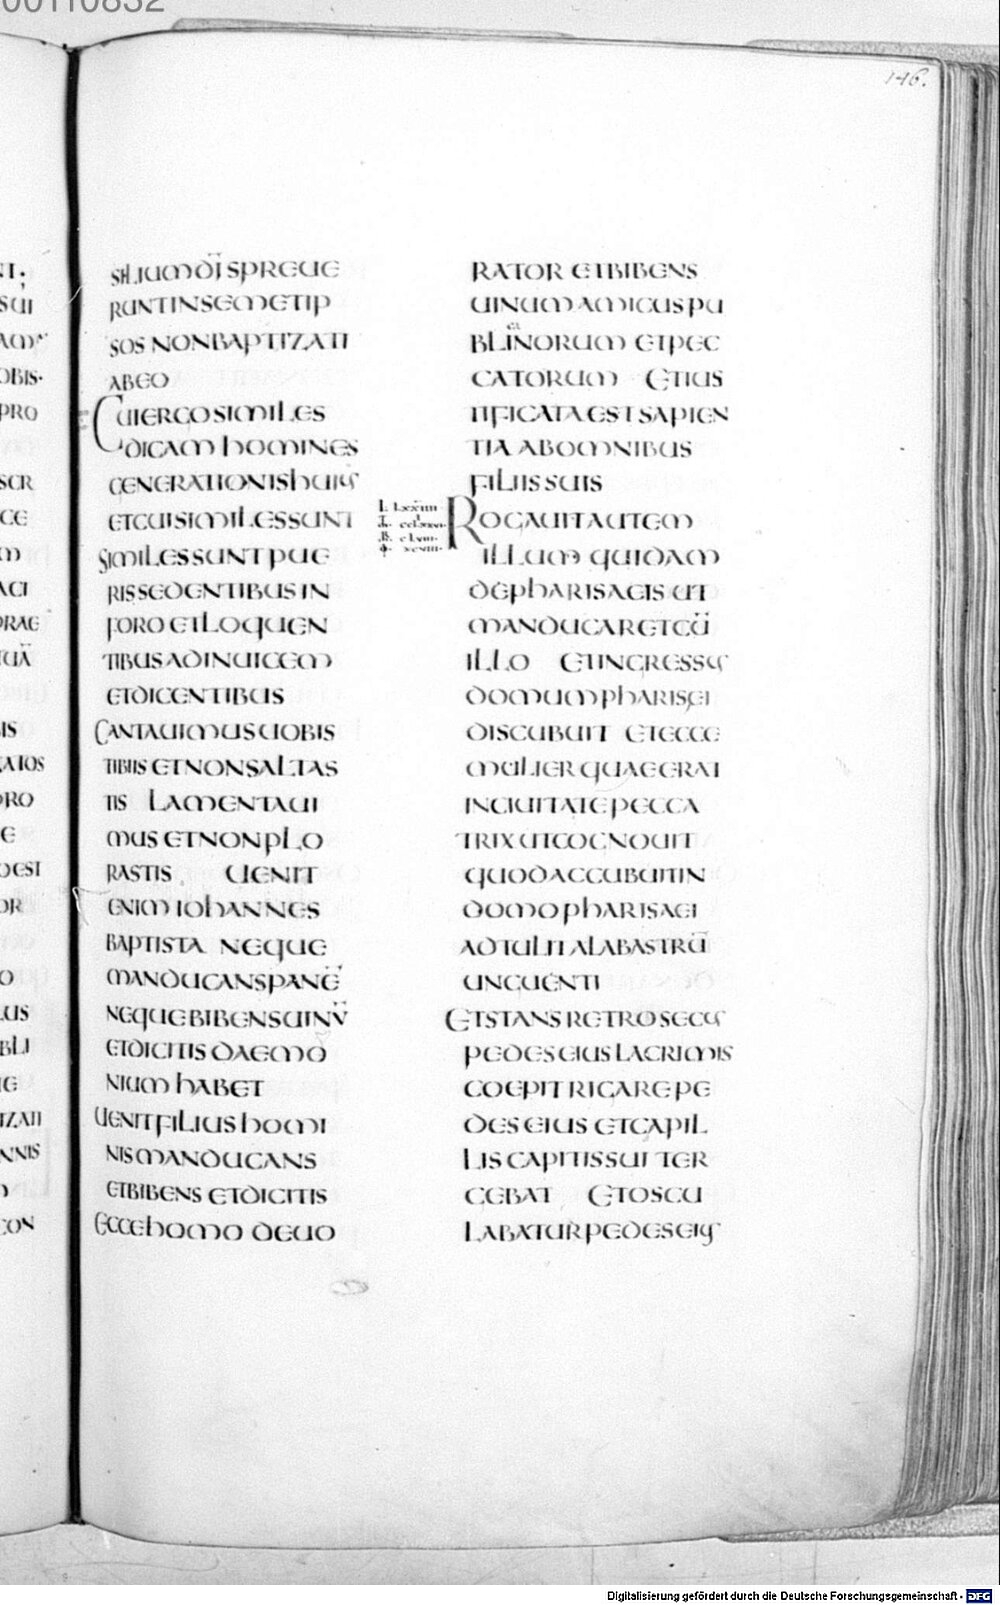 00110832
146.
SILIUM DĪ SPREUE
RUNT IN SEMETIP
SOS NON BAPTIZATI
AB EO
CUI ERGO SIMILES
DICAM HOMINES
GENERATIONIS HUIUS
ET CUI SIMILES SUNT
SIMILES SUNT PUE
RIS SEDENTIBUS IN
FORO ET LOQUEN
TIBUS AD INUICEM
ET DICENTIBUS
CANTAUIMUS UOBIS
TIBIIS ET NON SALTAS
TIS LAMENTAUI
MUS ET NON PLO
RASTIS UENIT
ENIM IOHANNES
BAPTISTA NEQUE
MANDUCANS PANĒ
NEQUE BIBENS UINŪ
ET DICITIS DAEMO
NIUM HABET
UENIT FILIUS HOMI
NIS MANDUCANS
ET BIBENS ET DICITIS
ECCE HOMO DEUO
RATOR ET BIBENS
UINUM AMICUS PU
BLINORUM ET PEC
CATORUM ET IUS
TIFICATA EST SAPIEN
TIA AB OMNIBUS
FILIIS SUIS
ROGAUIT AUTEM
ILLUM QUIDAM
DE PHARISAEIS UT
MANDUCARET CŪ
ILLO ET INGRESSUS
DOMUM PHARISEI
DISCUBUIT ET ECCE
MULIER QUAE ERAT
IN CIUITATE PECCA
TRIX UT COGNOUIT
QUOD ACCUBUIT IN
DOMO PHARISAEI
ADTULIT ALABASTRŪ
UNGUENTI
ET STANS RETRO SECUS
PEDES EIUS LACRIMIS
COEPIT RIGARE PE
DES EIUS ET CAPIL
LIS CAPITIS SUI TER
GEBAT ET OSCU
LABATUR PEDES EIUS
Digitalisierung gefördert durch die Deutsche Forschungsgemeinschaft - DFG